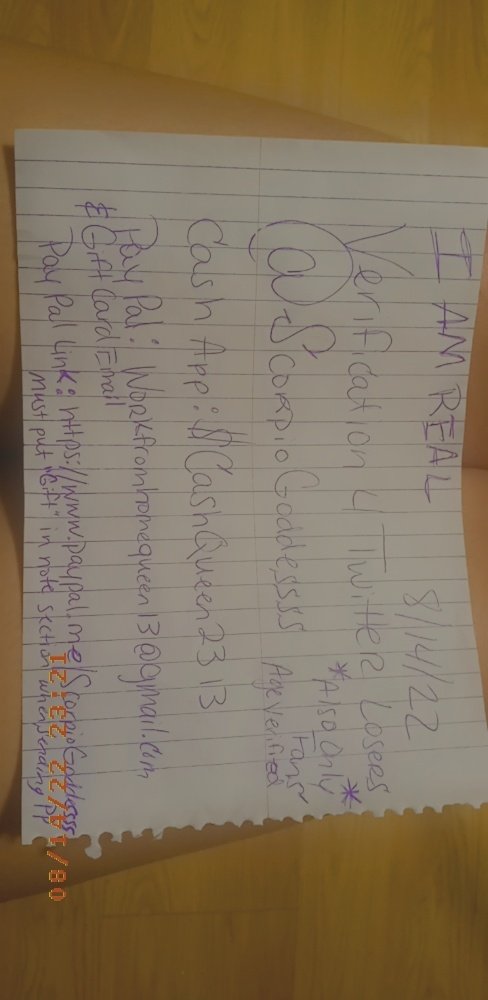 I AM REAL 8/14/22
Verification 4 Twitter Losers
*Also Only*
Fans
@ScorpioGoddesssss Age Verified
Cash App: $CashQueen2313
PayPal: Workfromhomequeen13@gmail.com
& Gift Card Email
PayPal Link: https://www.paypal.me/ScorpioGoddessss
Must put "Gift" in note section when sending pp
08/14/22 23:21